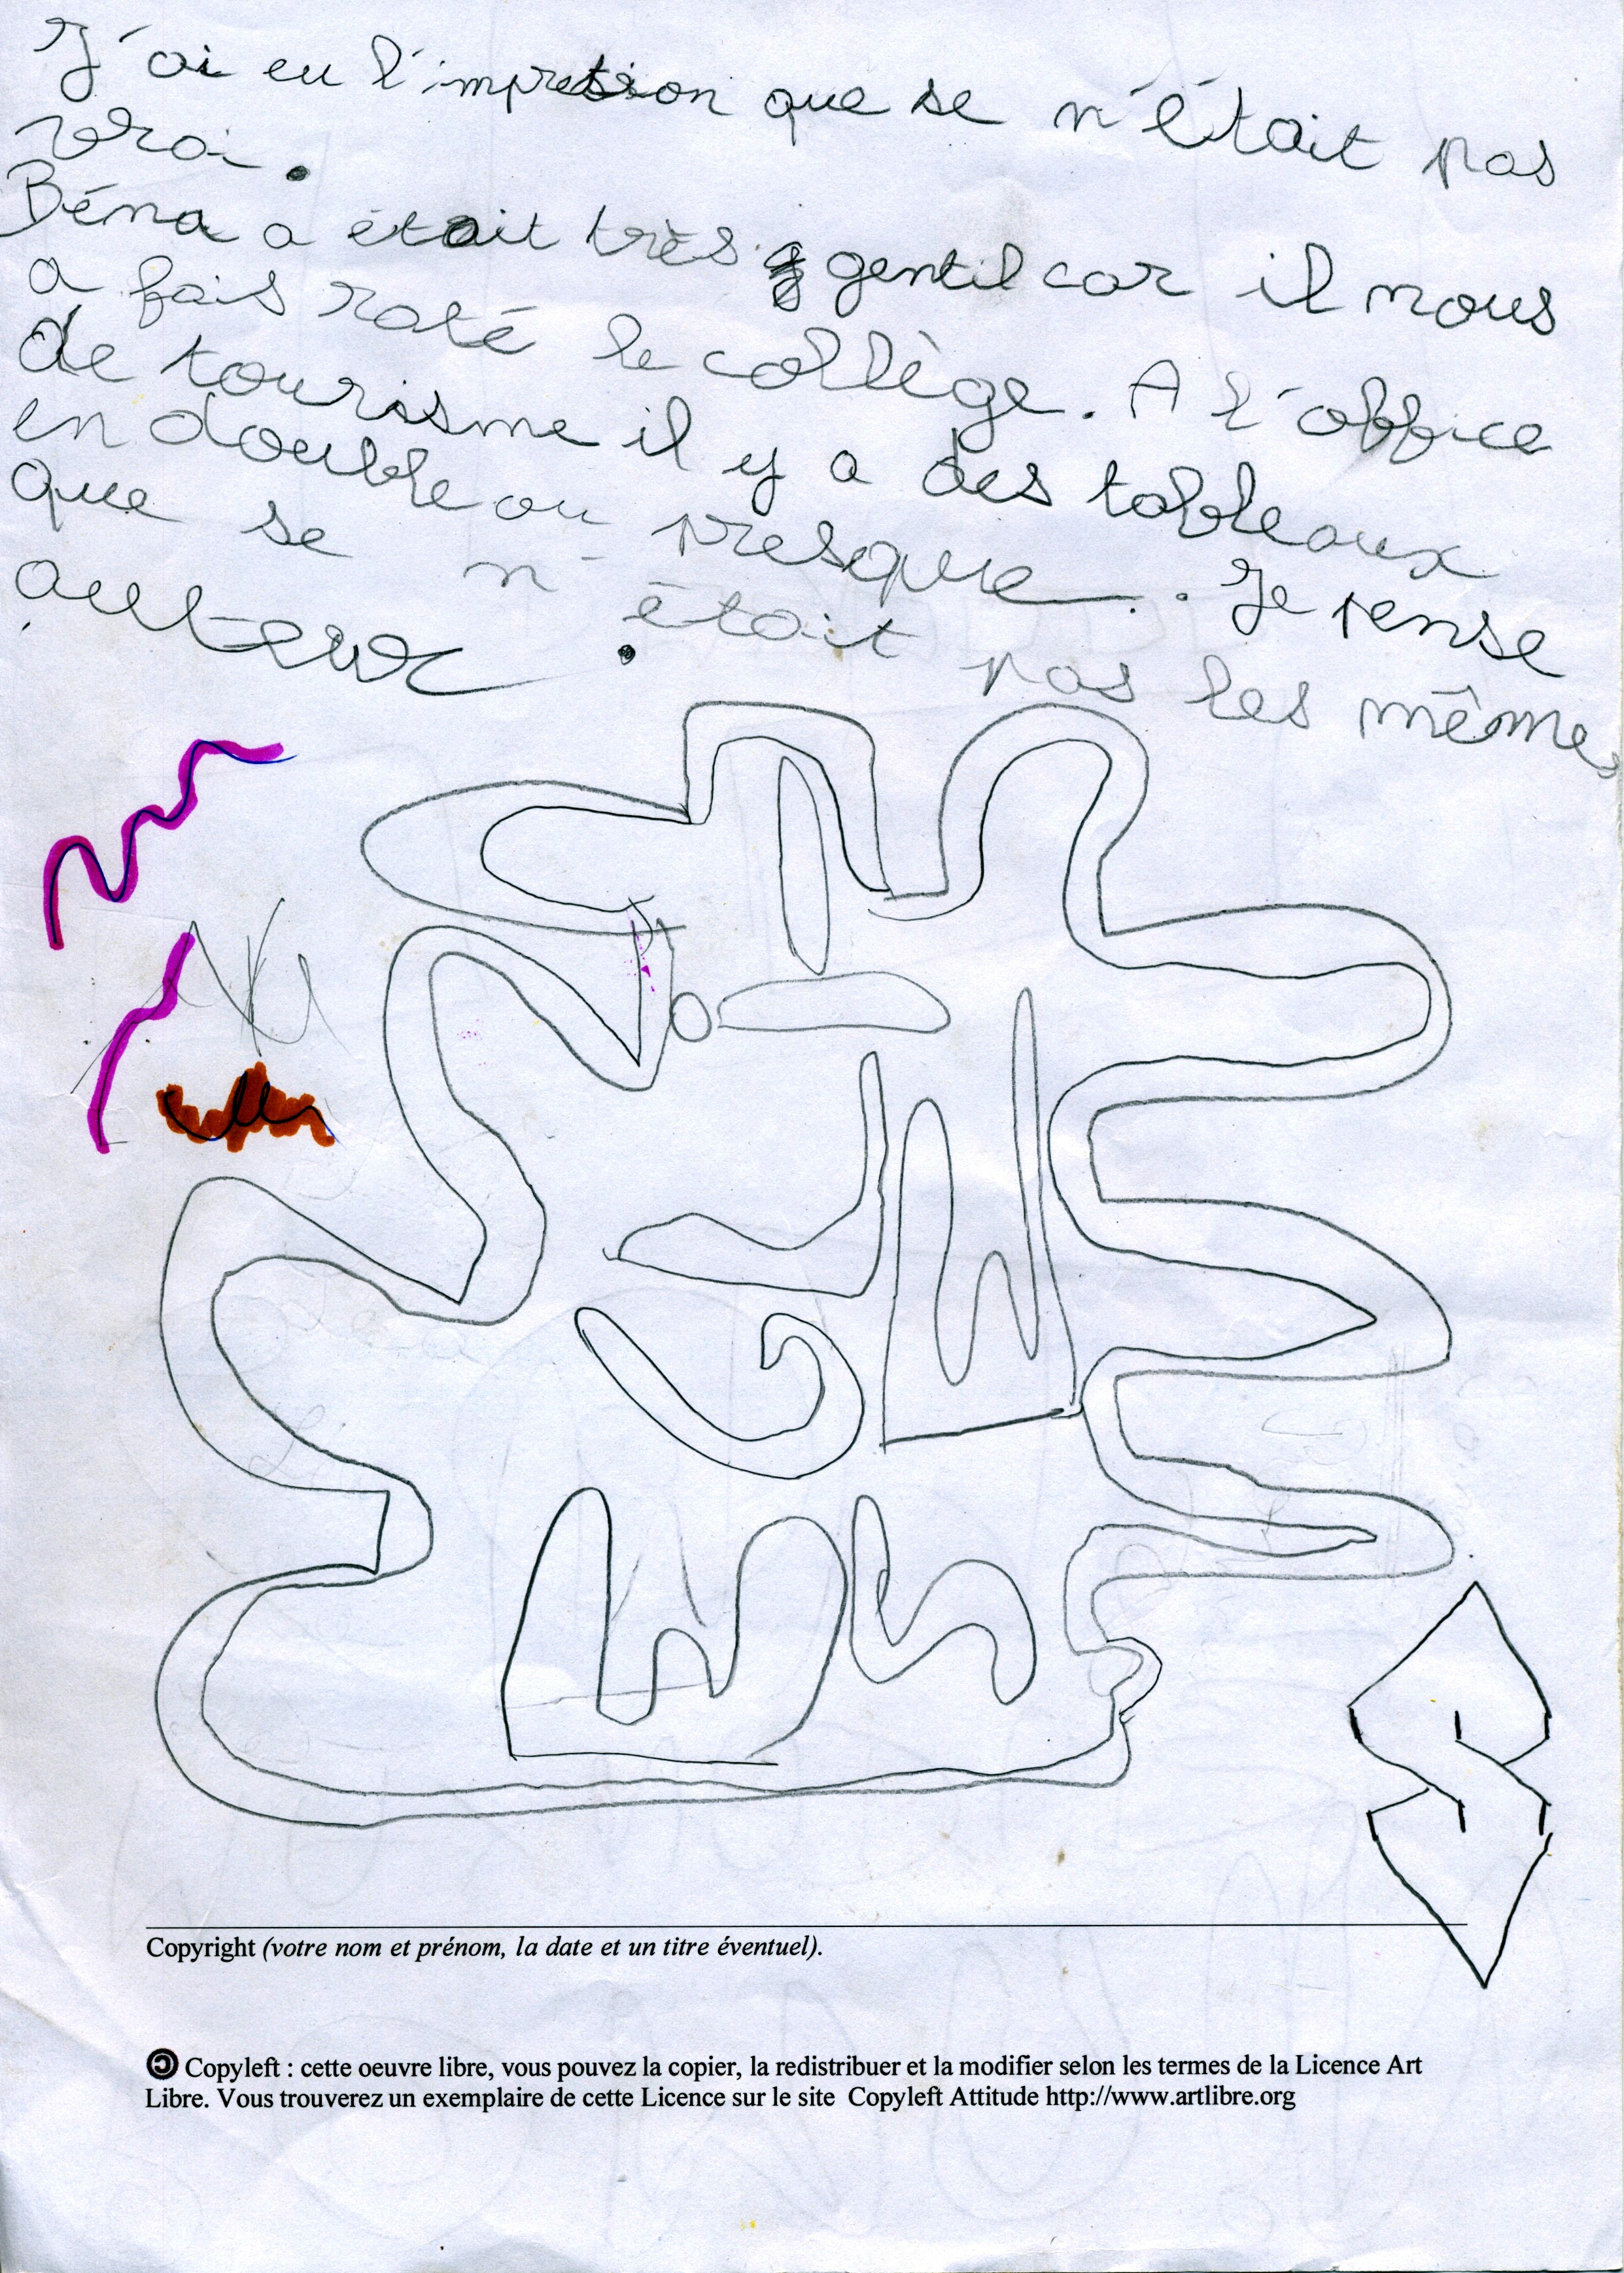 J'ai eu l'impression que se n'était pas
vrai.
Béna a était très gentil car il nous
a fais raté le collège. A l'office
de tourisme il y a des tableaux
en double ou presque. Je pense
que se n'était pas les mêmes
auteur.
Copyright (votre nom et prénom, la date et un titre éventuel).
Copyleft : cette oeuvre libre, vous pouvez la copier, la redistribuer et la modifier selon les termes de la Licence Art
Libre. Vous trouverez un exemplaire de cette Licence sur le site Copyleft Attitude http://www.artlibre.org